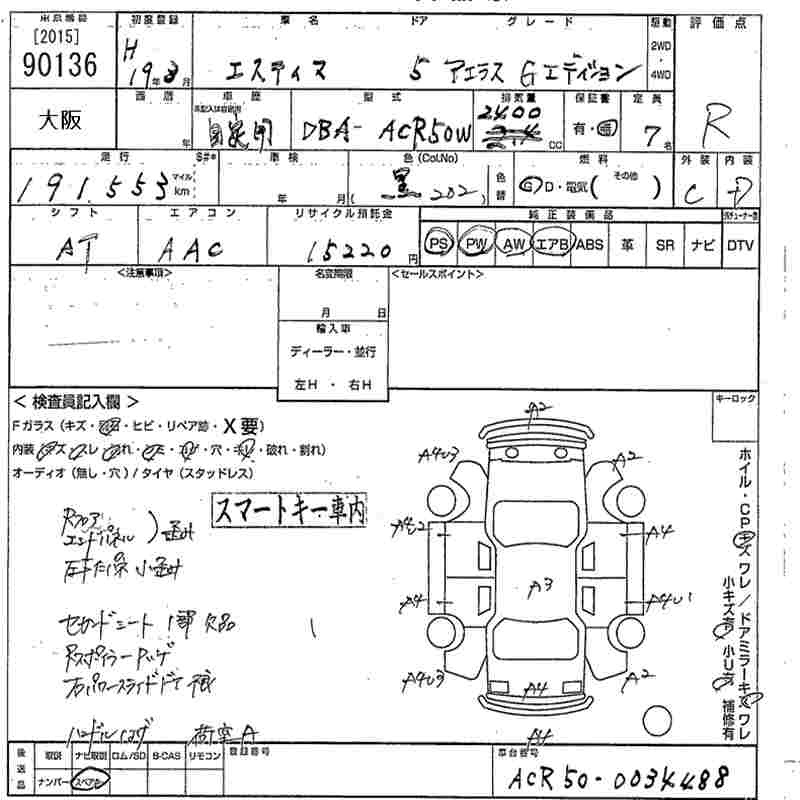 東京番号 初度登録 車名 ドア グレード 駆動 評価点
[2015]
90136
H 19年8月 エスティマ 5 アエラス Gエディション 2WD・4WD R
西暦 車歴 型式 排気量 保証書 定員
大阪 年 自家用 DBA- ACR50W 2400 CC 有・無 7名
走行 S#* 車検 色(Col.No) 燃料 外装 内装
191,553 マイル km 年 月 黒 202 色替 G・D・電気( その他 ) C D
シフト エアコン リサイクル預託金 純正装備品
AT AAC 15220円 PS PW AW エアB ABS 革 SR ナビ DTV
<注意事項> 名変期限 <セールスポイント>
月 日
輸入車
ディーラー・並行
左H・右H
<検査員記入欄> キーロック
Fガラス(キズ・ ・ヒビ・リペア跡・X要)
破れ・割れ)
オーディオ(無し・穴)/タイヤ(スタッドレス)
スマートキー車内
Rフロア
エンドパネル
セカンドシート 1部欠品
右パワースライドドア
荷室A
A2
A4U3 A2
A4
A3
A4 A4U1
A4U3 A2
A4
A4
ホイル・CPキズ ワレ/ドアミラーキズ ワレ
小キズ有 小U有 補修有
後送品 取説 ナビ取説 ロム/SD B-CAS リモコン 登録番号 車台番号
ナンバー スペアキー
ACR50-0034488